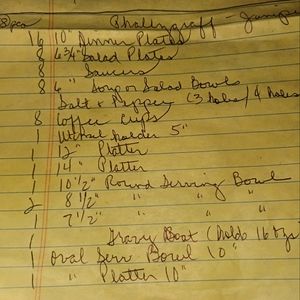 8 pcs Phaltzgraff - Juniper
16 10" Dinner Plates
8 6 3/4" Salad Plates
8 Saucers
8 6" Soup or Salad Bowls
Salt & Pepper (3 holes / 4 holes
8 Coffee Cups
1 Utensil holder 5"
1 12" Platter
1 14" Platter
1 10 1/2" Round Serving Bowl
2 8 1/2" " " "
1 7 1/2" " " "
1 Gravy Boat (holds 16 ozs
1 Oval Serv Bowl 10"
1 " Platter 10"